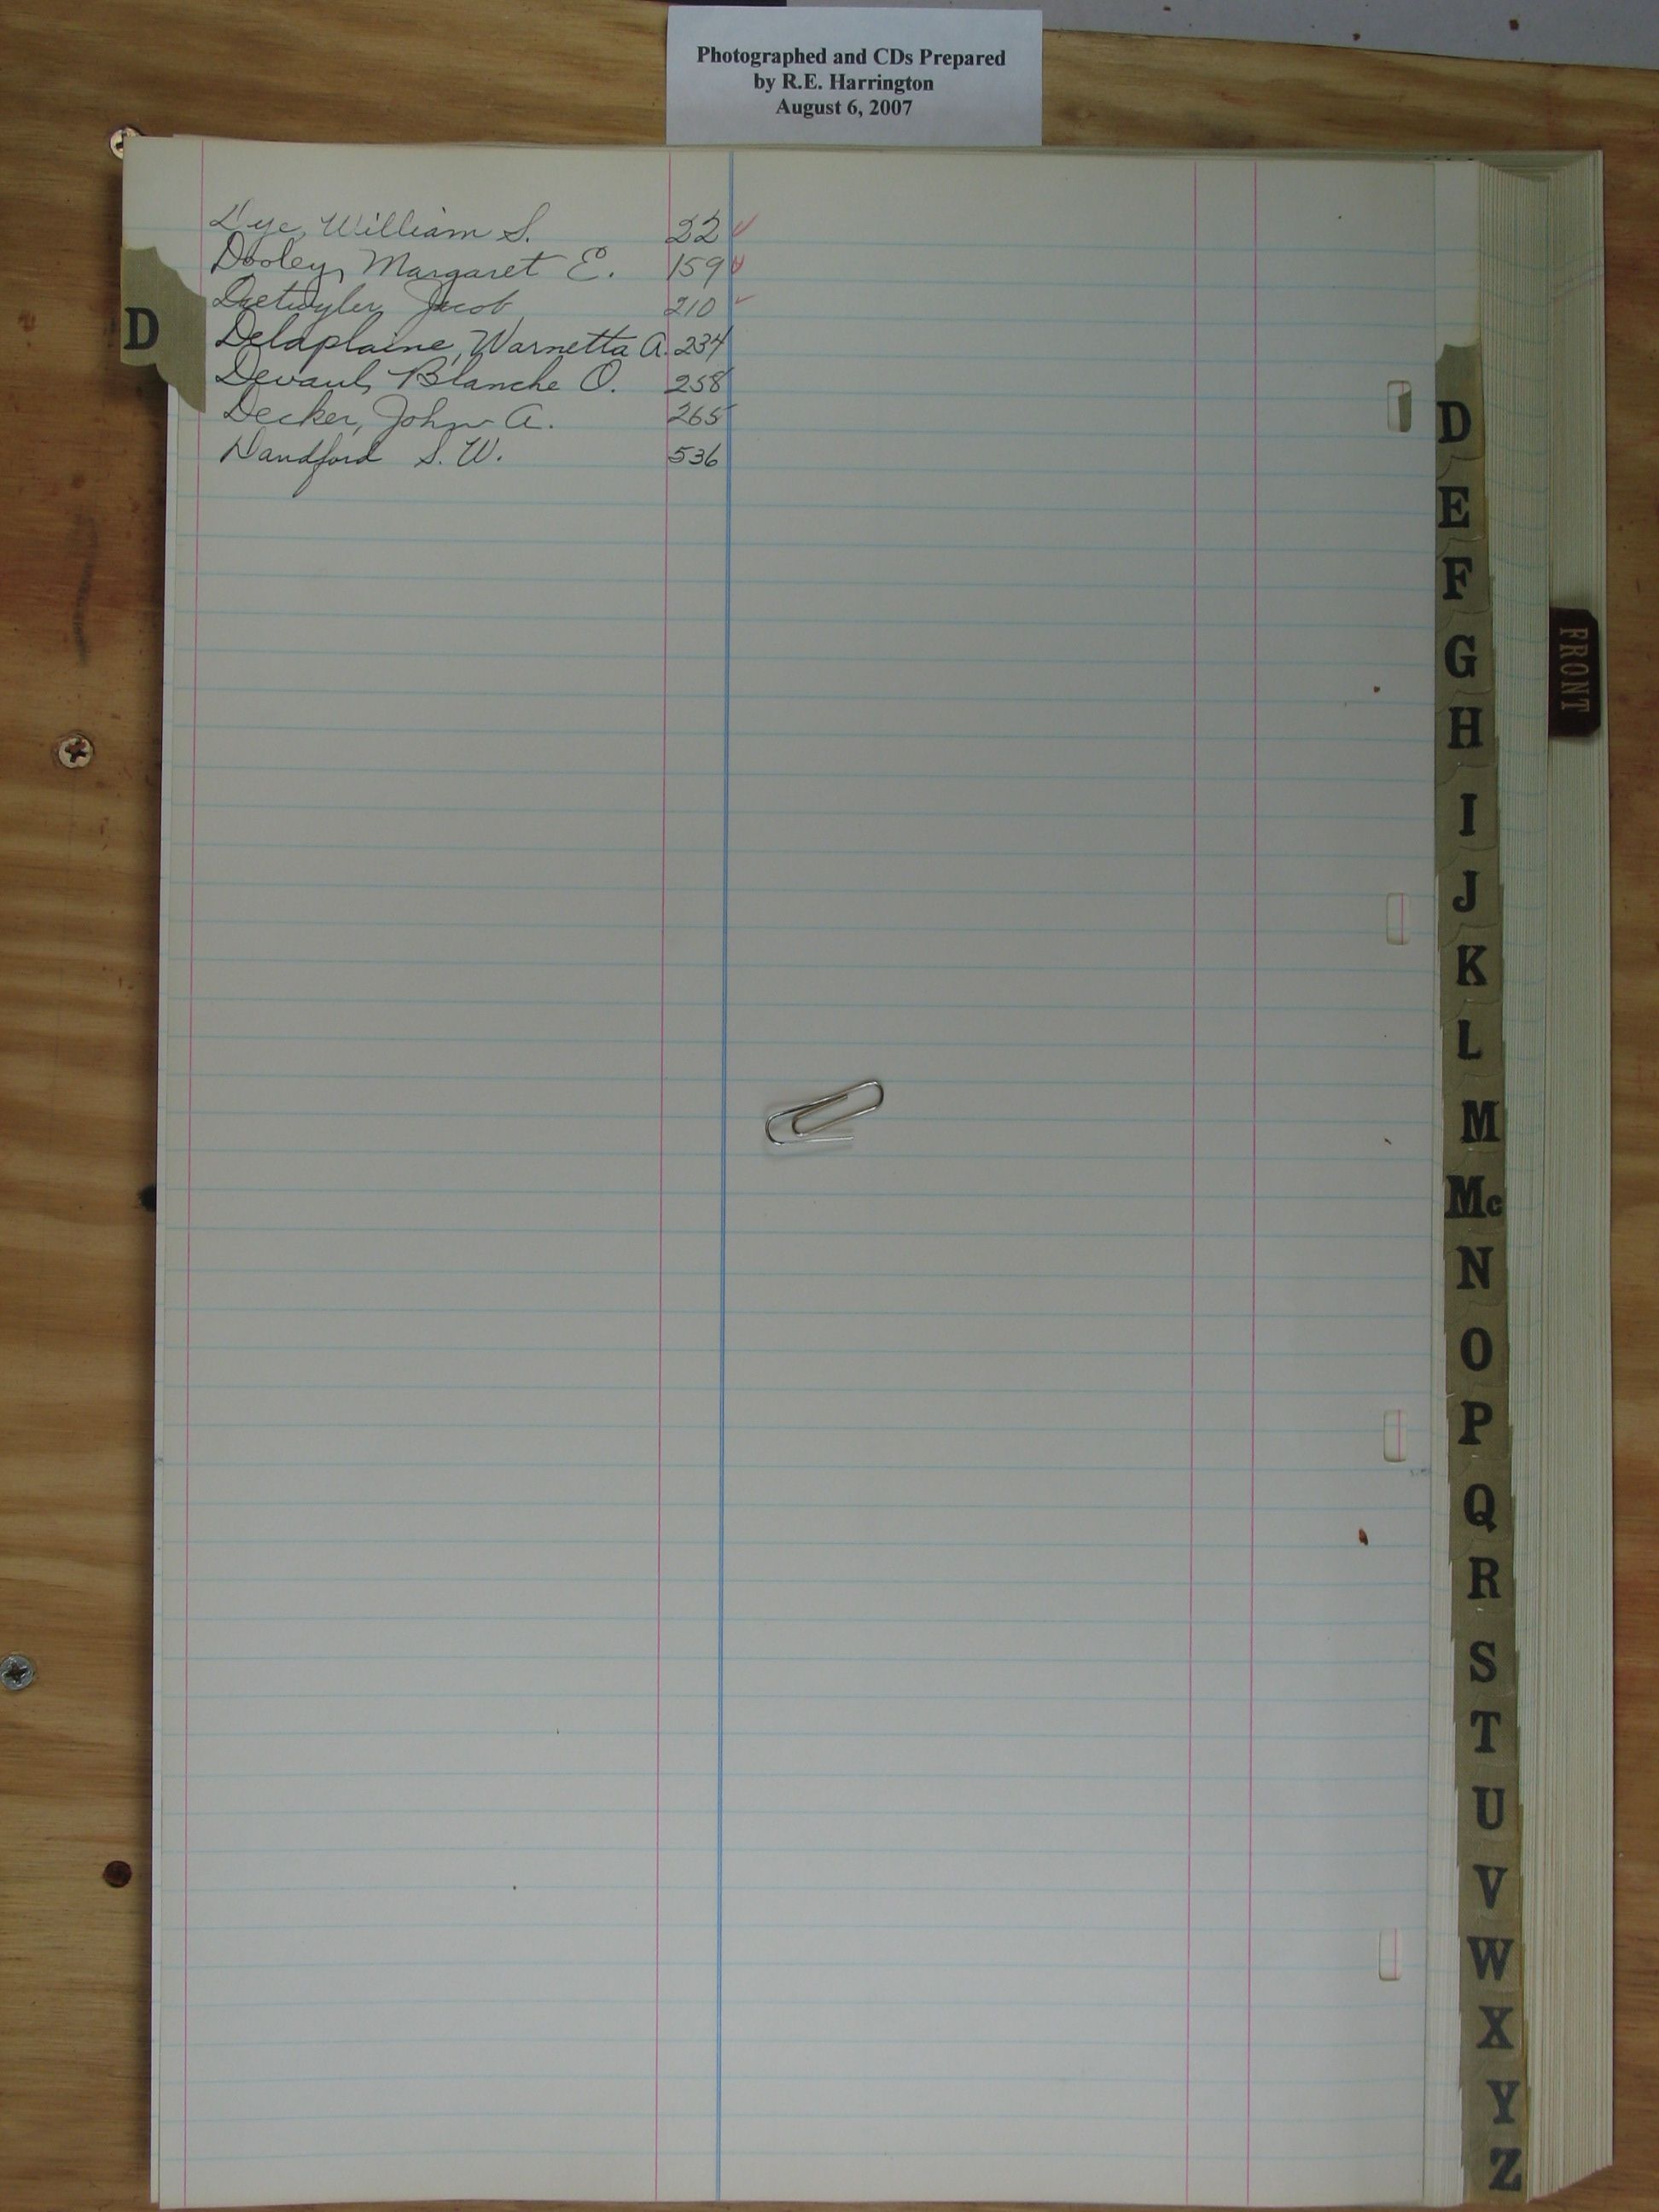 Photographed and CDs Prepared
by R.E. Harrington
August 6, 2007
Dye, William S. 22
Dooley, Margaret E. 159
Dietwyler, Jacob 210
Delaplaine, Warnetta A. 234
Devaul, Blanche O. 258
Decker, John A. 265
Dandford S. W. 536
D
D
E
F
G
H
I
J
K
L
M
Mc
N
O
P
Q
R
S
T
U
V
W
X
Y
Z
FRONT